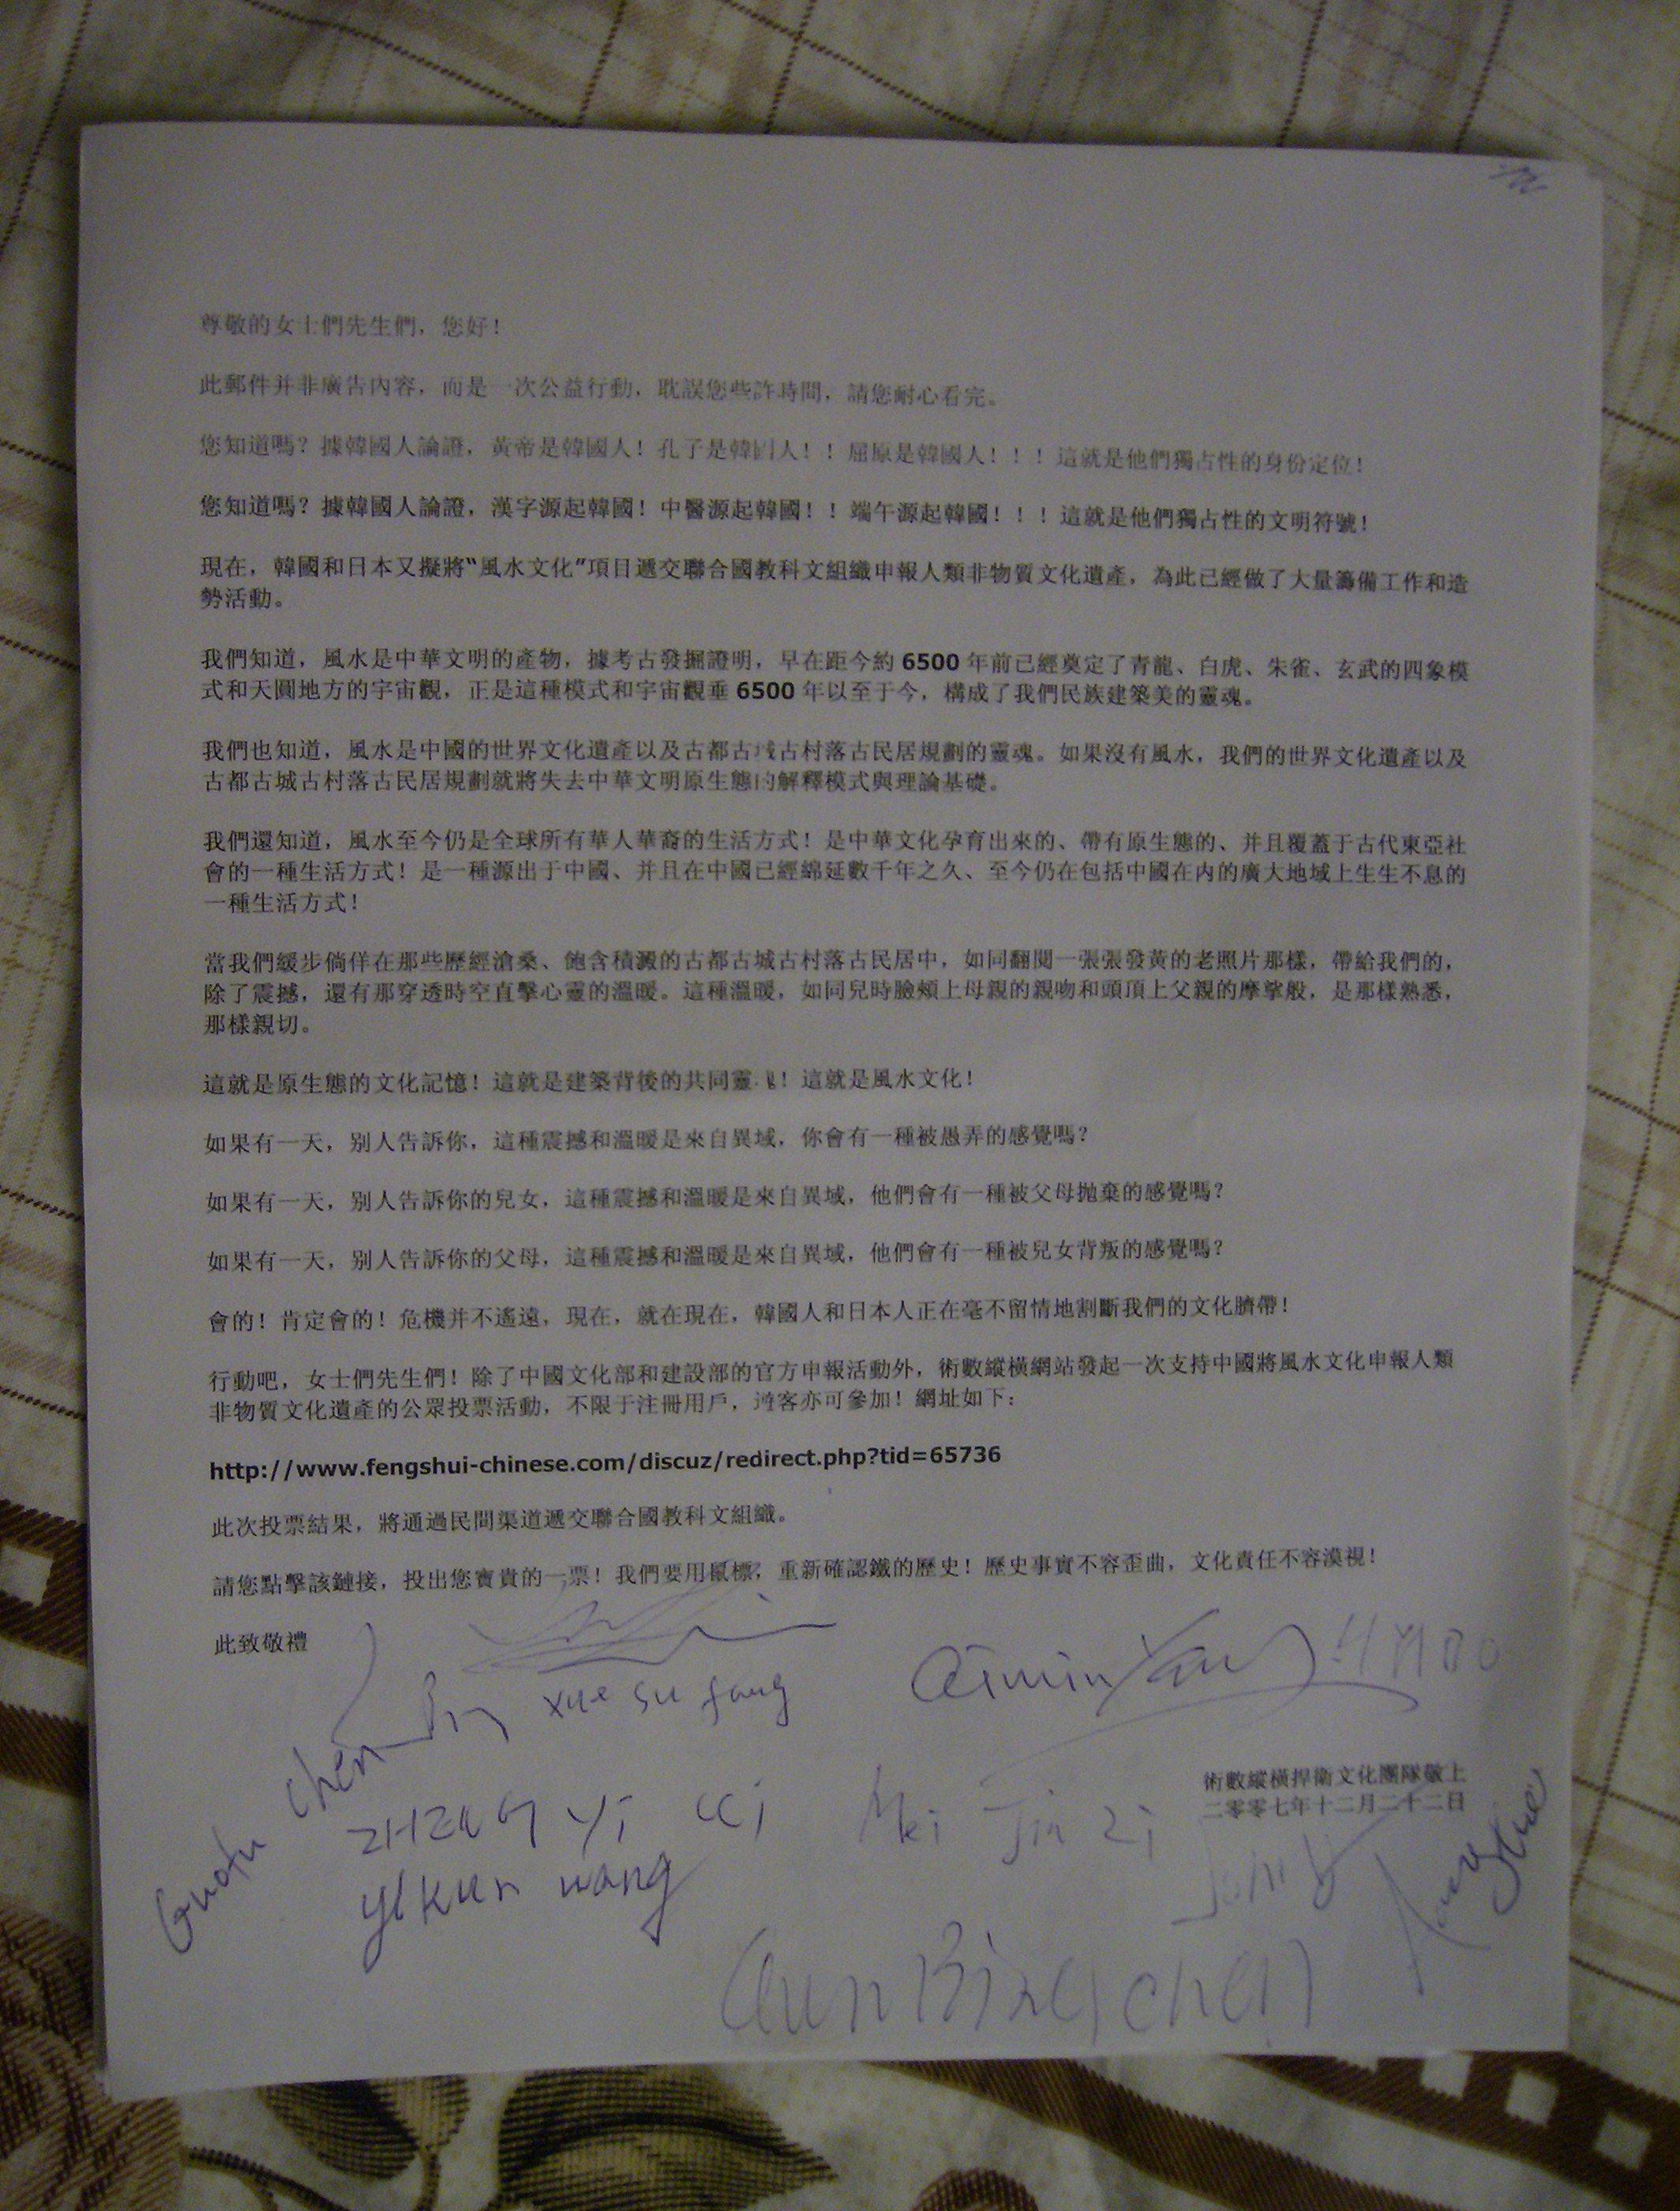 尊敬的女士們先生們，您好！
此郵件并非廣告內容，而是一次公益行動，耽誤您些許時間，請您耐心看完。
您知道嗎？據韓國人論證，黃帝是韓國人！孔子是韓國人！！屈原是韓國人！！！這就是他們獨占性的身份定位！
您知道嗎？據韓國人論證，漢字源起韓國！中醫源起韓國！！端午源起韓國！！！這就是他們獨占性的文明符號！
現在，韓國和日本又擬將“風水文化”項目遞交聯合國教科文組織申報人類非物質文化遺產，為此已經做了大量籌備工作和造
勢活動。
我們知道，風水是中華文明的產物，據考古發掘證明，早在距今約 6500 年前已經奠定了青龍、白虎、朱雀、玄武的四象模
式和天圓地方的宇宙觀，正是這種模式和宇宙觀垂 6500 年以至于今，構成了我們民族建築美的靈魂。
我們也知道，風水是中國的世界文化遺產以及古都古城古村落古民居規劃的靈魂。如果沒有風水，我們的世界文化遺產以及
古都古城古村落古民居規劃就將失去中華文明原生態的解釋模式與理論基礎。
我們還知道，風水至今仍是全球所有華人華裔的生活方式！是中華文化孕育出來的、帶有原生態的、并且覆蓋于古代東亞社
會的一種生活方式！是一種源出于中國、并且在中國已經綿延數千年之久、至今仍在包括中國在內的廣大地域上生生不息的
一種生活方式！
當我們緩步倘佯在那些歷經滄桑、飽含積澱的古都古城古村落古民居中，如同翻閱一張張發黃的老照片那樣，帶給我們的，
除了震撼，還有那穿透時空直擊心靈的溫暖。這種溫暖，如同兒時臉頰上母親的親吻和頭頂上父親的摩挲般，是那樣熟悉，
那樣親切。
這就是原生態的文化記憶！這就是建築背後的共同靈魂！這就是風水文化！
如果有一天，別人告訴你，這種震撼和溫暖是來自異域，你會有一種被愚弄的感覺嗎？
如果有一天，別人告訴你的兒女，這種震撼和溫暖是來自異域，他們會有一種被父母拋棄的感覺嗎？
如果有一天，別人告訴你的父母，這種震撼和溫暖是來自異域，他們會有一種被兒女背叛的感覺嗎？
會的！肯定會的！危機并不遙遠，現在，就在現在，韓國人和日本人正在毫不留情地割斷我們的文化臍帶！
行動吧，女士們先生們！除了中國文化部和建設部的官方申報活動外，術數縱橫網站發起一次支持中國將風水文化申報人類
非物質文化遺產的公眾投票活動，不限于注冊用戶，遊客亦可參加！網址如下：
http://www.fengshui-chinese.com/discuz/redirect.php?tid=65736
此次投票結果，將通過民間渠道遞交聯合國教科文組織。
請您點擊該鏈接，投出您寶貴的一票！我們要用鼠標，重新確認鐵的歷史！歷史事實不容歪曲，文化責任不容漠視！
此致敬禮
xue su fang
術數縱橫捍衛文化團隊敬上
二零零七年十二月二十二日
Mei Jin Zi
yikun wang